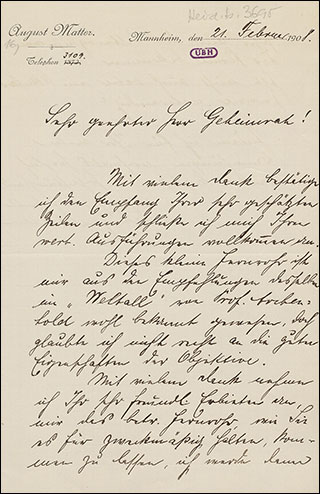 Heid. Hs. 3695
August Matter.
Mannheim, den 21. Februar 1908.
Telephon 3109.
UBH
Sehr geehrter Herr Geheimrat!
Mit vielem Dank bestätige
ich den Empfang Ihrer sehr geschätzten
Zeilen und schließe ich mich Ihren
wert. Ausführungen vollkommen an.
Dieses kleine Fernrohr ist
mir aus den Empfehlungen desselben
im „Weltall" von Prof. Archen-
hold wohl bekannt gewesen, doch
glaubte ich nicht recht an die guten
Eigenschaften der Objektive.
Mit vielem Dank nehme
ich Ihr sehr freundl. Erbieten an,
mir das betr. Fernrohr, wie Sie
es für zweckmäßig halten, kom-
men zu lassen, ich werde dann